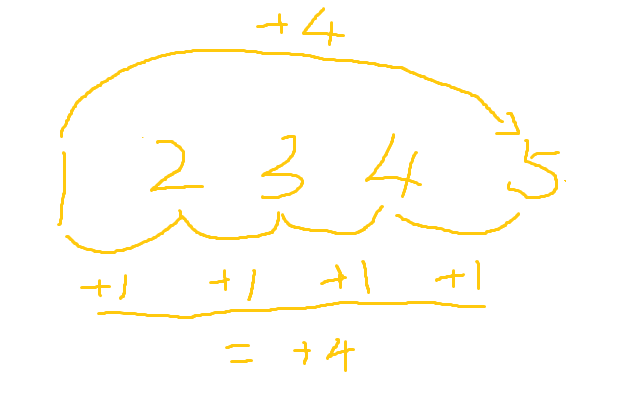 +4
1 2 3 4 5
+1 +1 +1 +1
= +4